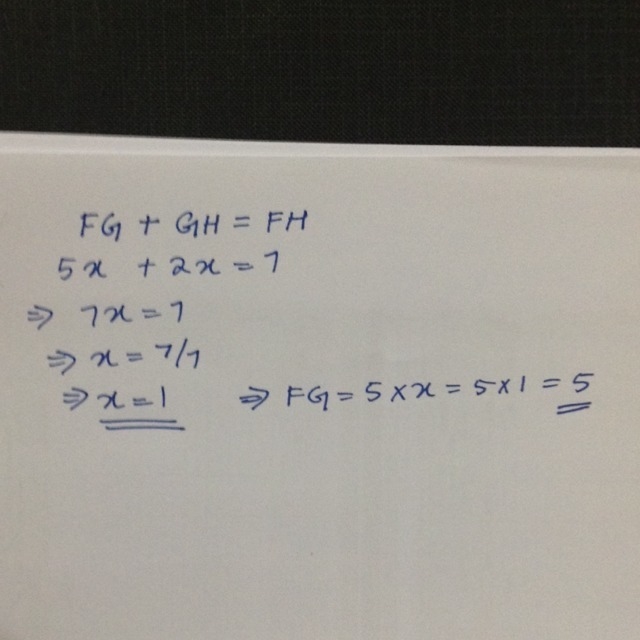 FG + GH = FH
5x + 2x = 7
⇒ 7x = 7
⇒ x = 7/7
⇒ x = 1 ⇒ FG = 5 × x = 5 × 1 = 5